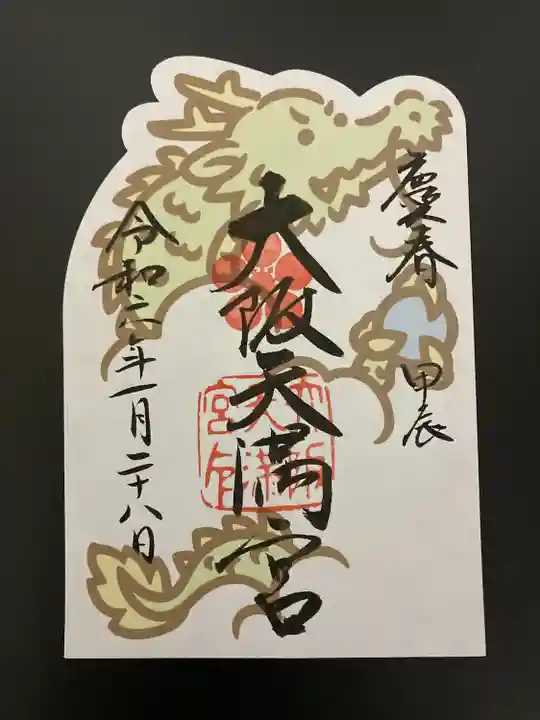 慶春 甲辰
大阪天満宮
令和六年一月二十八日